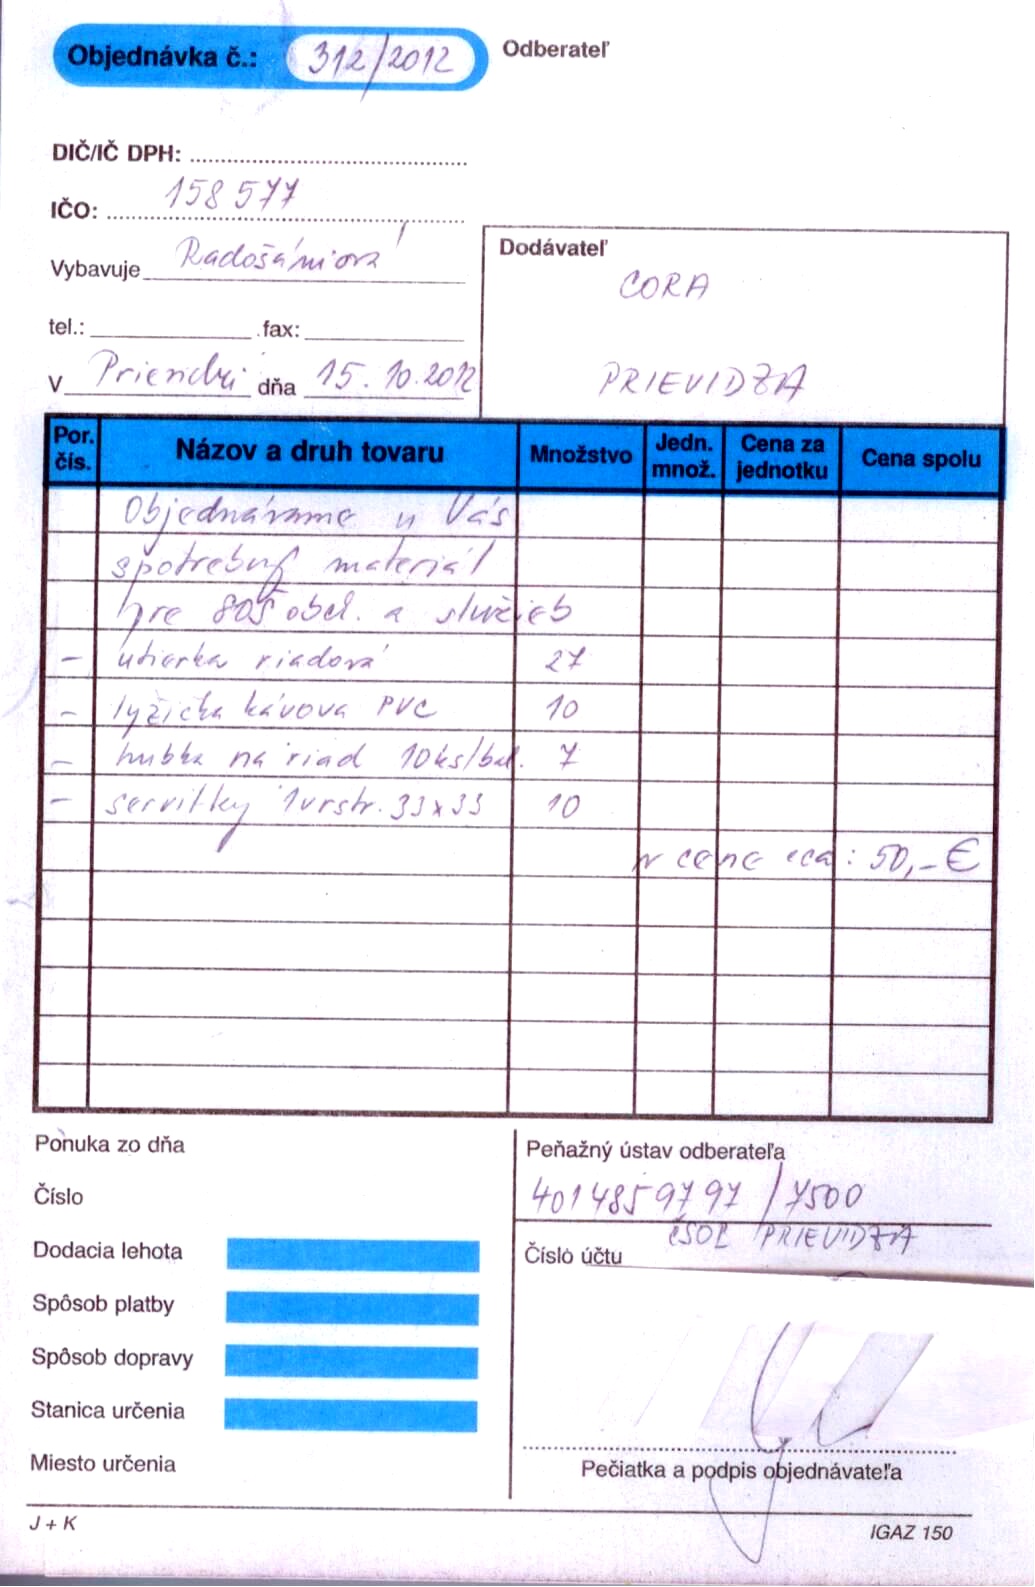 Objednávka č.: 312/2012
Odberateľ
DIČ/IČ DPH:
IČO: 158 577
Vybavuje Radošániová
tel.: fax:
V Prievidzi dňa 15.10.2012
Dodávateľ
CORA
PRIEVIDZA
Por. čís. Názov a druh tovaru Množstvo Jedn. množ. Cena za jednotku Cena spolu
Objednávame u Vás
spotrebný materiál
pre SOŠ obch. a služieb
- utierka riadová 27
- lyžička kávova PVC 10
- hubka na riad 10ks/bal. 7
- servítky 1vrstv. 33x33 10
v cene cca: 50,- €
Ponuka zo dňa
Číslo
Dodacia lehota
Spôsob platby
Spôsob dopravy
Stanica určenia
Miesto určenia
Peňažný ústav odberateľa
4014859797 /7500
ČSOB PRIEVIDZA
Číslo účtu
Pečiatka a podpis objednávateľa
J + K
IGAZ 150